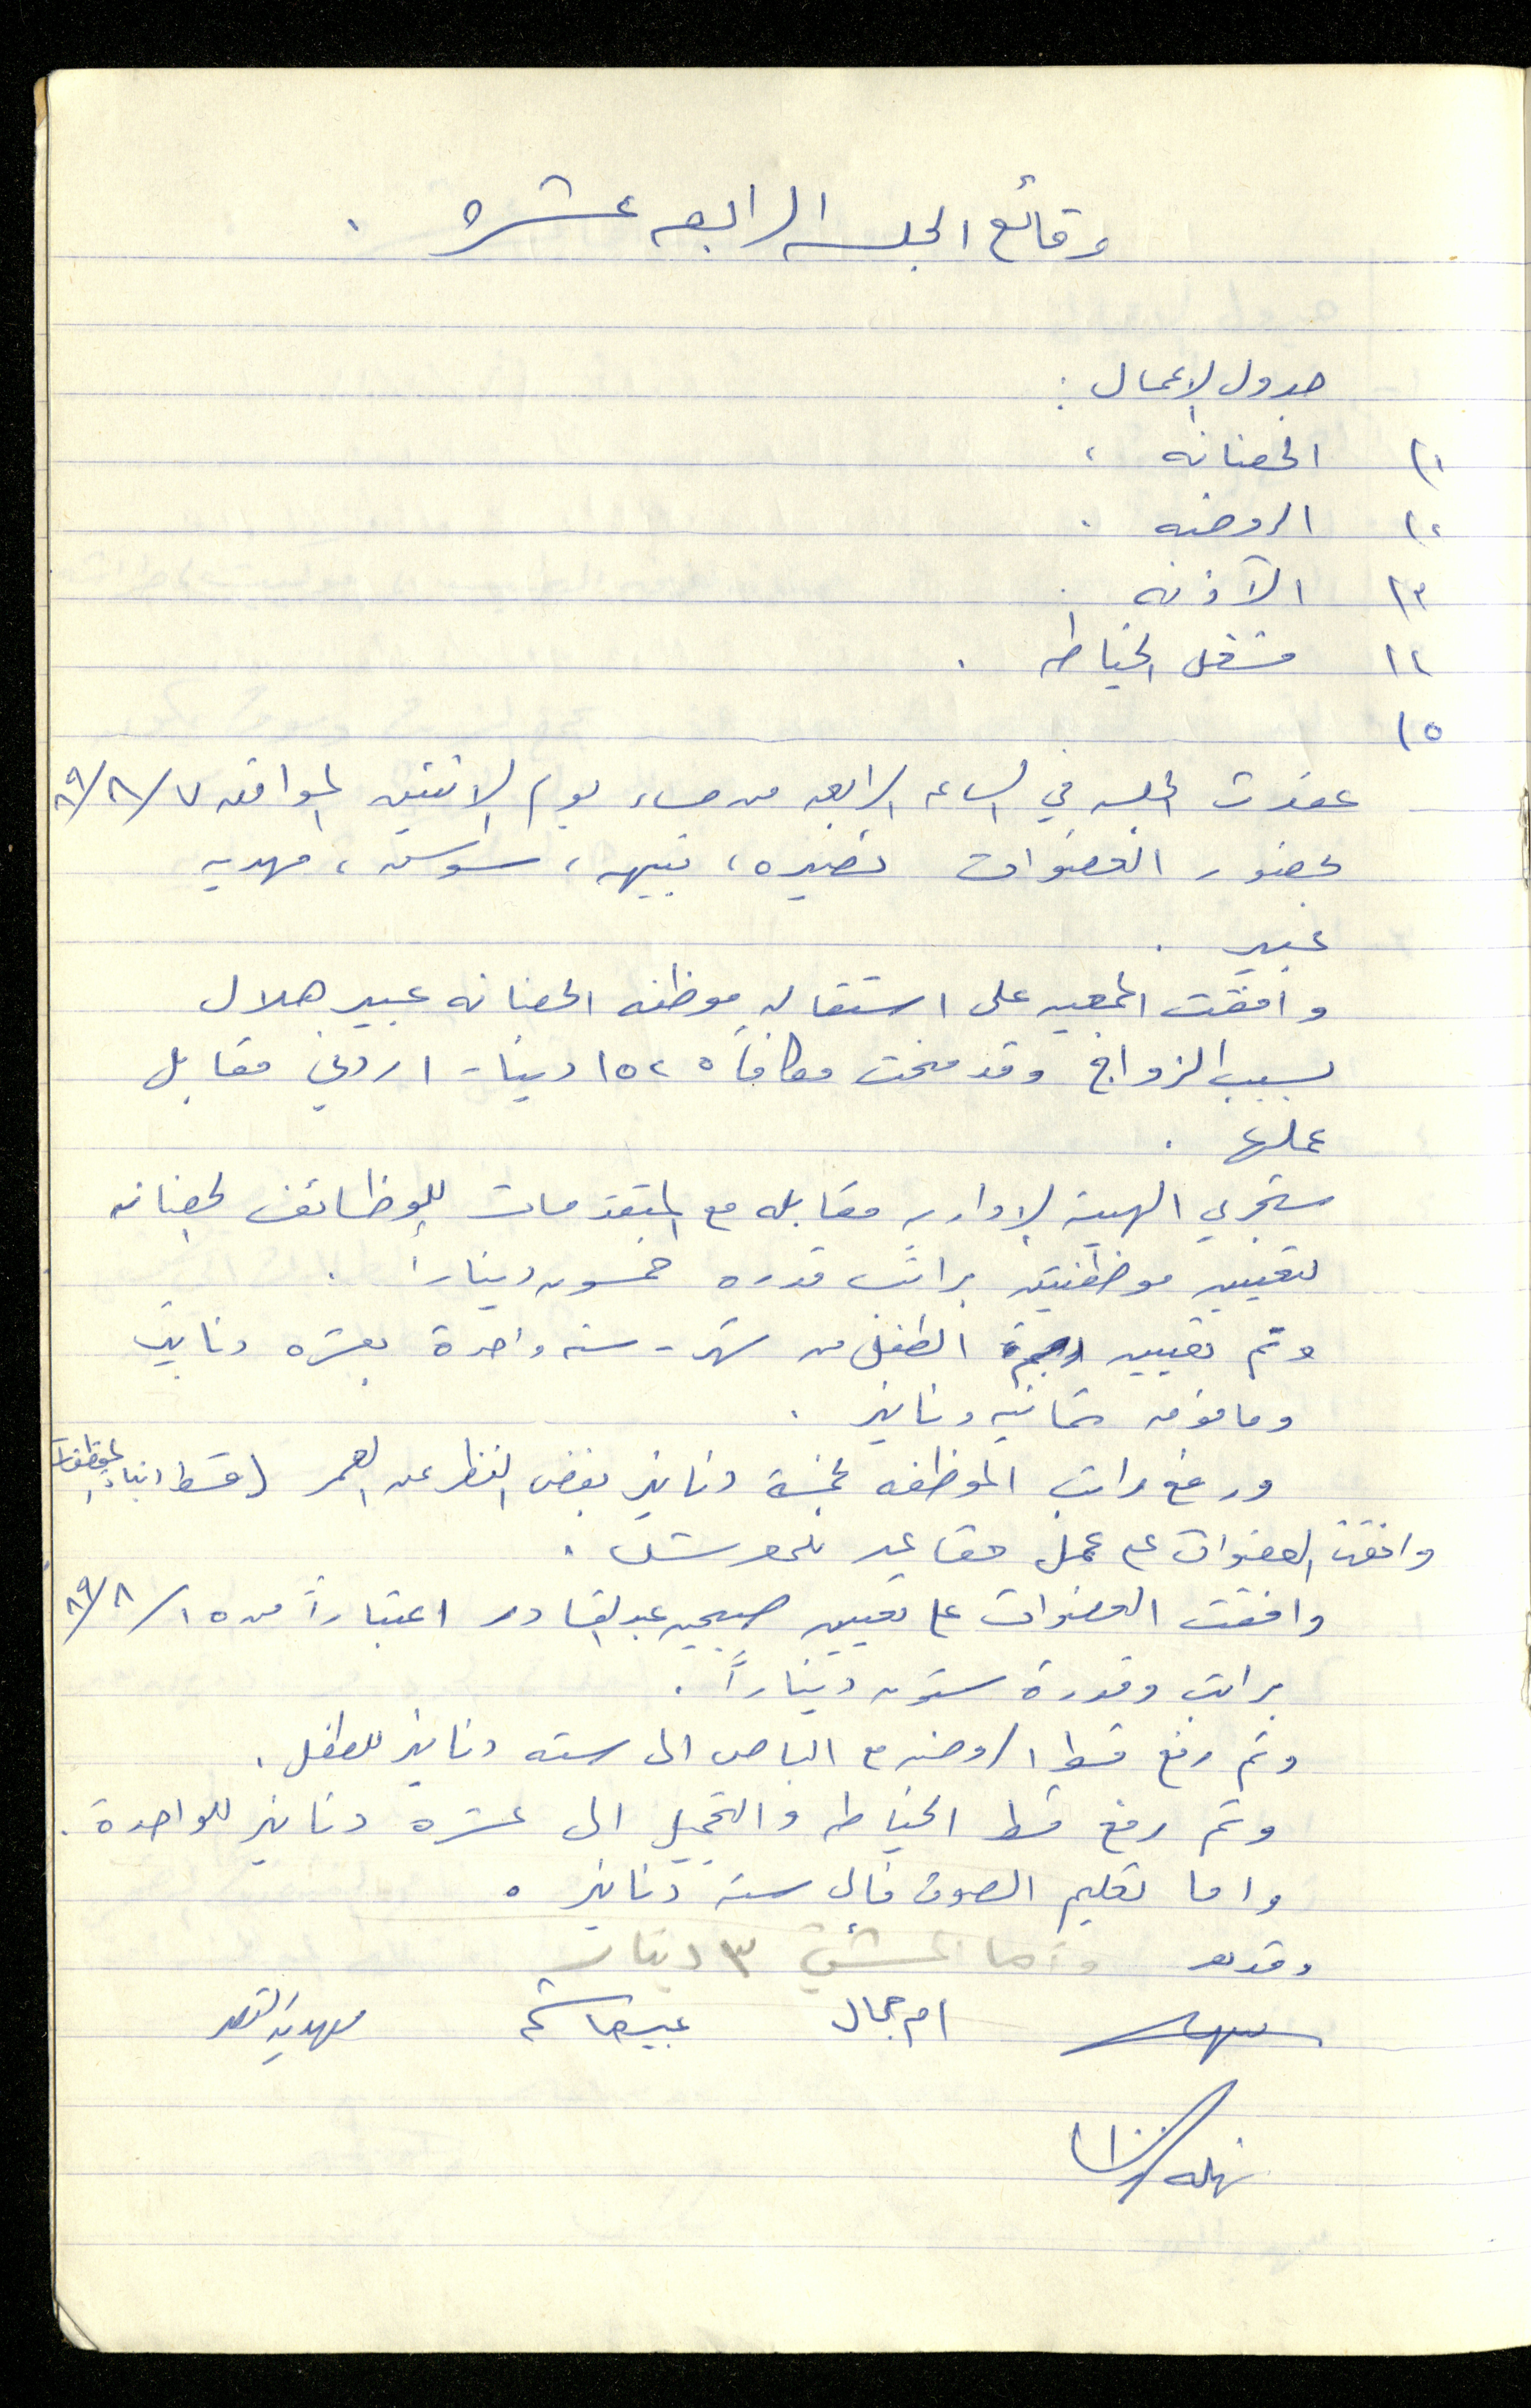 وقائع الجلسه الرابعه عشره .
جدول الاعمال :
١) الحضانه .
٢) الروضه .
٣) الآذنه .
٤) مشغل الخياطه .
٥)
عقدت الجلسه في الساعه الرابعه من مساء يوم الاثنين الموافق ٧/٨/٨٩
بحضور العضوات نصيره ، نبيهه ، سوسن ، مهديه
عبير .
وافقت الجمعيه على استقاله موظفه الحضانه عبير هلال
بسبب الزواج وقد منحت مكافأه ١٥٢٥ دينار اردني مقابل
عملها .
ستجري الهيئة الاداريه مقابله مع المتقدمات للوظائف لحضانه
لتعيين موظفتين براتب قدره خمسون دينارا .
وتم تعيين الطفل من شهر - سنه واحدة بعشره دنانير
وما فوق ثمانيه دنانير .
ورفع راتب الموظفه لخمسة دنانير بغض النظر عن العمر (قسط ابناء الموظفات
وافقت العضوات على عمل مقاعد للمرسَل .
وافقت العضوات على تعيين صبحيه عبد القادر اعتباراً من ١٥/٨/٨٩
براتب وقدرة ستون ديناراً .
وتم رفع قسط الروضه مع الباص الى سته دنانير للطفل .
وتم رفع قسط الخياطه والتجميل الى عشره دنانير للواحدة .
واما تعليم الصوف فالى سته دنانير .
وقدره واما المشق ٣ دينار
ام جمال عبير هاشم مهديه
نهله